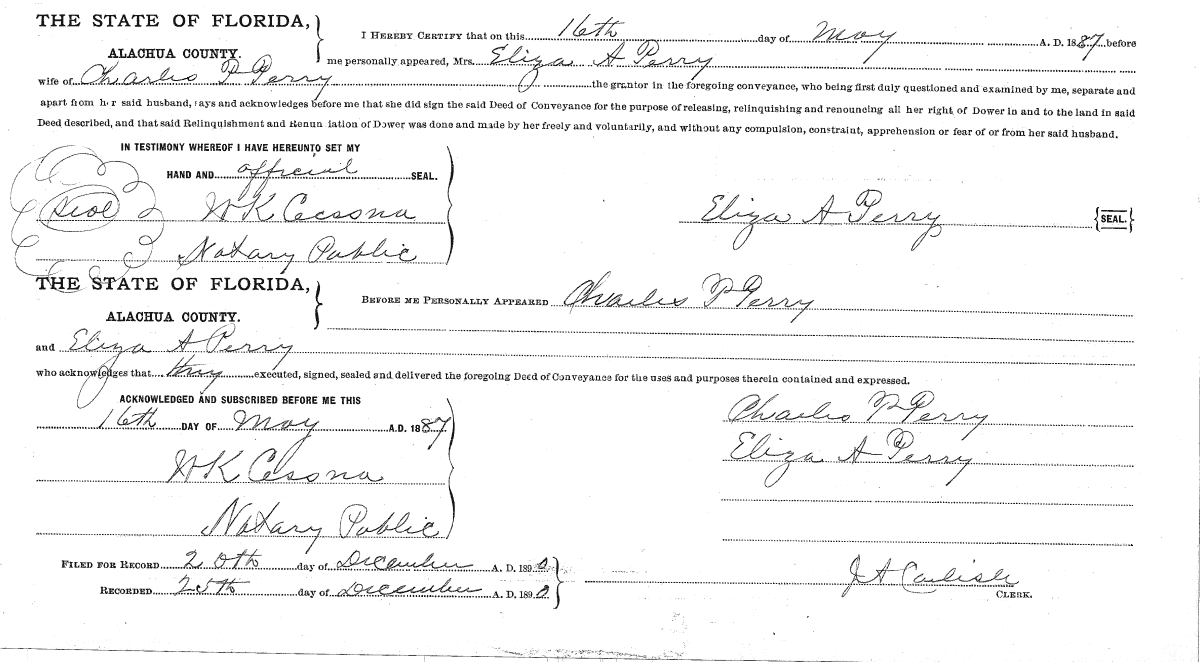 THE STATE OF FLORIDA,
ALACHUA COUNTY.
I HEREBY CERTIFY that on this 16th day of May A. D. 1887 before
me personally appeared, Mrs. Eliza A Perry
wife of Charles P Perry the grantor in the foregoing conveyance, who being first duly questioned and examined by me, separate and
apart from her said husband, says and acknowledges before me that she did sign the said Deed of Conveyance for the purpose of releasing, relinquishing and renouncing all her right of Dower in and to the land in said
Deed described, and that said Relinquishment and Renun iation of Dower was done and made by her freely and voluntarily, and without any compulsion, constraint, apprehension or fear of or from her said husband.
IN TESTIMONY WHEREOF I HAVE HEREUNTO SET MY
HAND AND official SEAL.
Seal W K Cessna
Eliza A Perry {SEAL.}
Notary Public
THE STATE OF FLORIDA,
ALACHUA COUNTY.
BEFORE ME PERSONALLY APPEARED Charles P Perry
and Eliza A Perry
who acknowledges that they executed, signed, sealed and delivered the foregoing Deed of Conveyance for the uses and purposes therein contained and expressed.
ACKNOWLEDGED AND SUBSCRIBED BEFORE ME THIS
16th DAY OF May A.D. 1887
W K Cessna
Notary Public
Charles P Perry
Eliza A Perry
FILED FOR RECORD 20th day of December A. D. 1890
RECORDED 25th day of December A. D. 1890
J A Carlisle
CLERK.